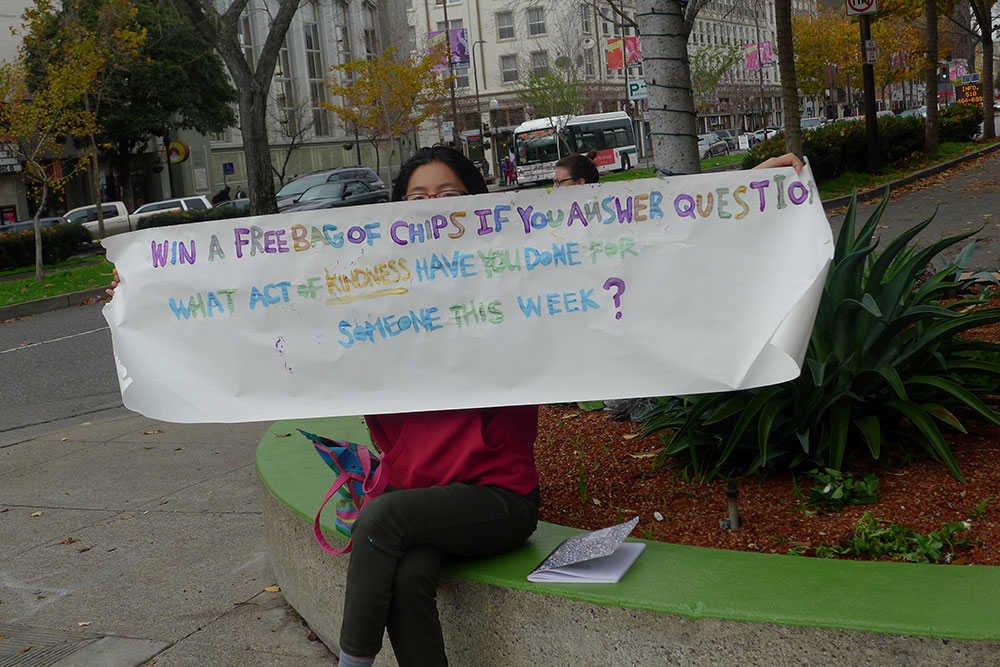 WIN A FREE BAG OF CHIPS IF YOU ANSWER QUESTION
WHAT ACT OF KINDNESS HAVE YOU DONE FOR
SOMEONE THIS WEEK?
P
INFO.
510